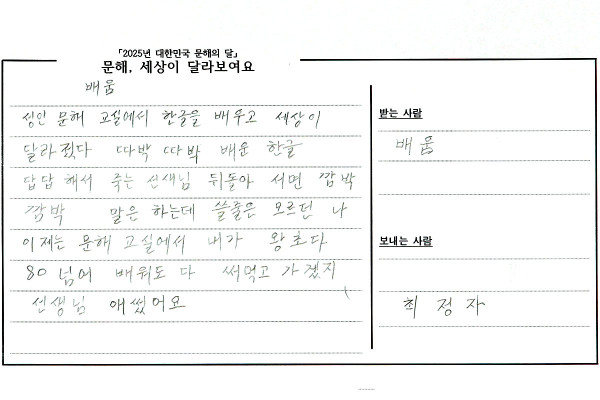 「2025년 대한민국 문해의 달」
문해, 세상이 달라보여요
배움
싱인 문해 교실에서 한글을 배우고 세상이
달라젔다 따박 따박 배운 한글
답답 해서 죽는 신새님 뒤돌아 서면 깜박
깜박 말은 하는데 쓸줄은 모르던 나
이제는 문해 교실에서 내가 왕초다
80 넘어 배워도 다 써먹고 가겠지
선생님 애썼어요
받는 사람
배움
보내는 사람
최정자